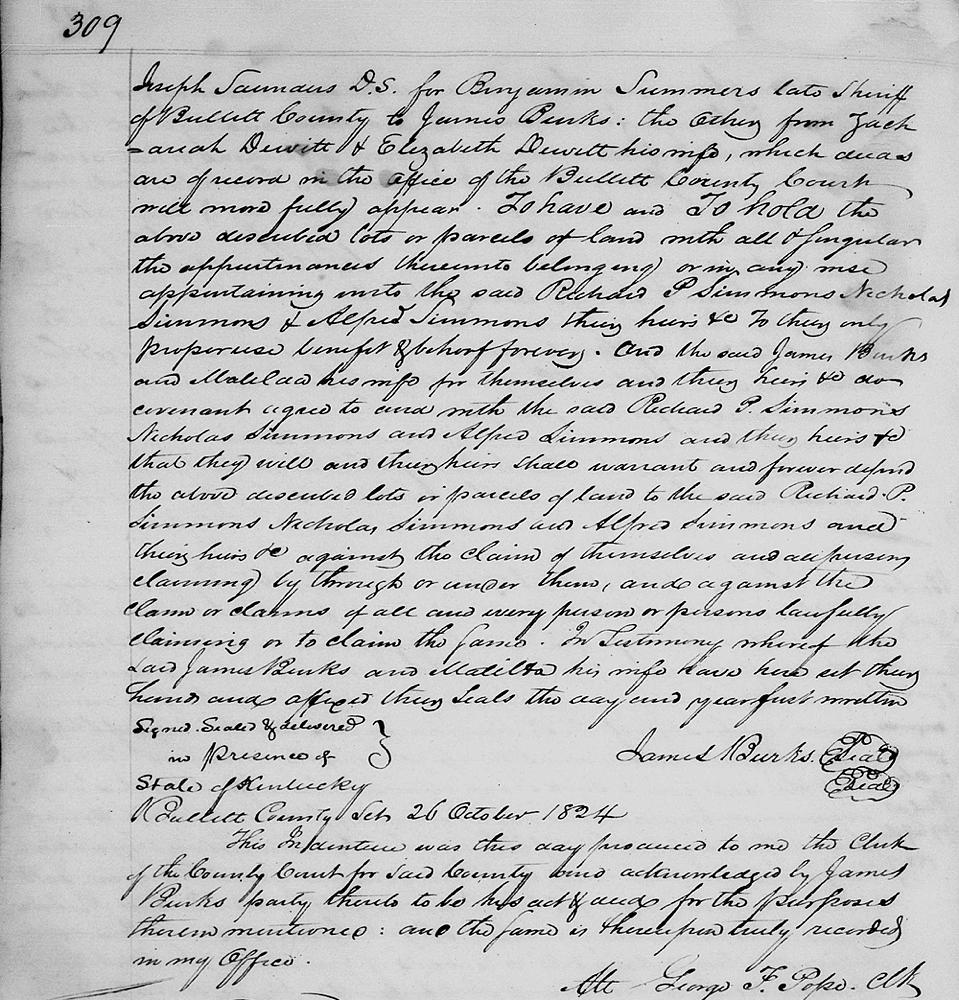 309
Joseph Saunders D.S. for Benjamin Summers late Sheriff
of Bullett County to James Burks: the Other from Zach
=ariah Dewitt & Elizabeth Dewitt his wife, which deeds
are of record in the office of the Bullett County Court
will more fully appear. To have and To hold the
above described lots or parcels of land with all & singular
the appurtinances thereunto belonging or in any wise
appertaining unto the said Richard P Simmons Nicholas
Simmons & Alfred Simmons their heirs &c To their only
proper use benefit & behoof forever. And the said James Burks
and Matilda his wife for themselves and their heirs &c do
covenant agree to and with the said Richard P. Simmons
Nicholas Simmons and Alfred Simmons and their heirs &c
that they will and their heirs shall warrant and forever defend
the above described lots or parcels of land to the said Richard P.
Simmons Nicholas Simmons and Alfred Simmons and
their heirs &c against the claim of themselves and all persons
claiming by through or under them, and against the
claim or claims of all and every person or persons lawfully
claiming or to claim the same. In Testimony whereof the
said James Burks and Matilda his wife have here set their
hands and affixed their seals the day and year first written
Signed. Sealed & delivered }
in presence of
James Burks. Seal
State of Kentucky
Seal
Bullett County Sct 26 October 1824
This Indenture was this day produced to me the Clerk
of the County Court for said County and acknowledged by James
Burks party thereto to be his act & deed for the purposes
therein mentioned: and the same is thereupon truly recorded
in my Office.
Att George F. Pope. Clk